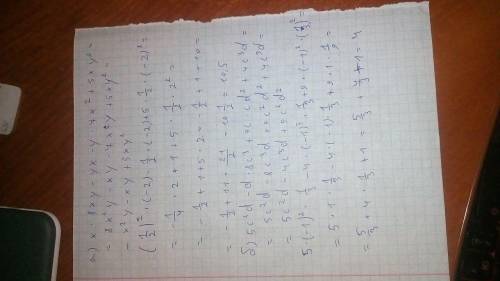 а) x · 8xy - yx · y - 7x² + 5xy² =
= 8x²y - xy² - 7x²y + 5xy² =
= x²y - xy + 5xy²
(1/2)² · (-2) - 1/2 · (-2) + 5 · 1/2 · (-2)² =
= - 1/4 · 2 + 1 + 5 · 1/2 · 2² =
= - 1/2 + 1 + 5 · 2 = - 1/2 + 1 + 10 =
= - 1/2 + 11 = 21/2 = 10 1/2 = 10,5
б) 5c²d - d · 8c³ + 9c · cd² + 4c³d =
= 5c²d - 8c³d + 9c²d² + 4c³d =
= 5c²d - 4c³d + 9c²d²
5 · (-1)² · 1/3 - 4 · (-1)³ · 1/3 + 9 · (-1)² · (1/3)² =
= 5 · 1 · 1/3 - 4 · (-1) · 1/3 + 9 · 1 · 1/9 =
= 5/3 + 4 · 1/3 + 1 = 5/3 + 4/3 + 1 = 4